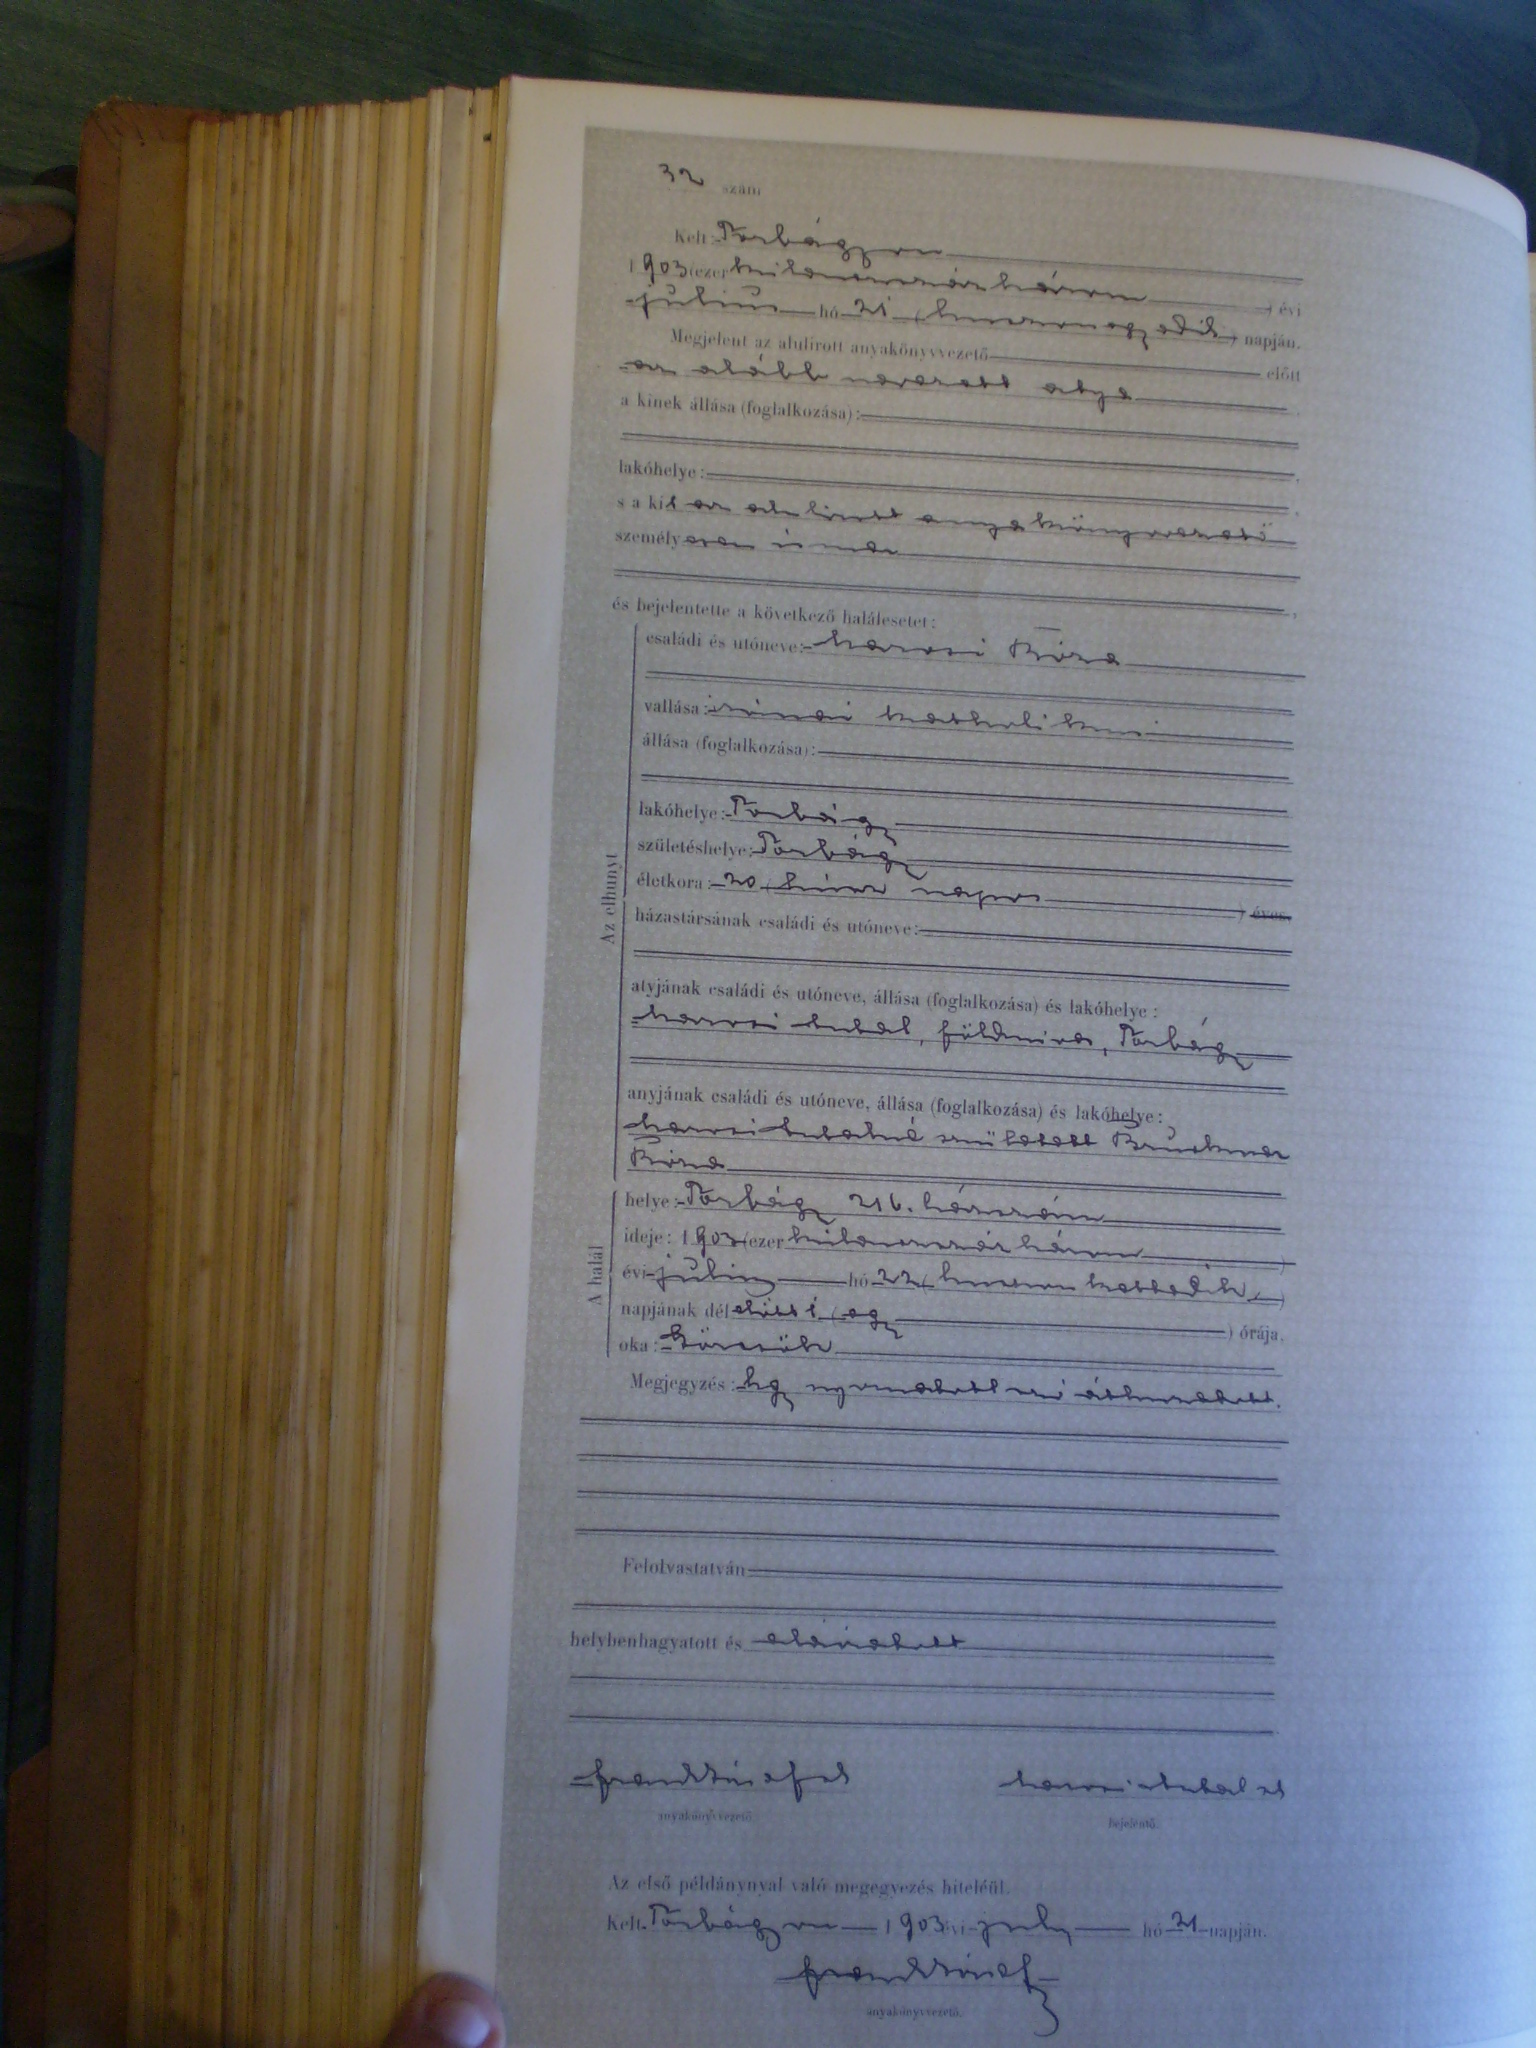 32 szám
Kelt: Torbágyon
1903 (ezer kilencszázhárom) évi
július hó 21 (huszonegyedik) napján.
Megjelent az alulirott anyakönyvvezető előtt
az alább nevezett atya
a kinek állása (foglalkozása):
lakóhelye:
s a kit az alulirott anyakönyvvezető
személyesen ismer
és bejelentette a következő halálesetet:
Az elhunyt
családi és utóneve: Róza
vallása: római katholikus
állása (foglalkozása):
lakóhelye: Torbágy
születéshelye: Torbágy
életkora: 20 (húsz napos) éves.
házastársának családi és utóneve:
atyjának családi és utóneve, állása (foglalkozása) és lakóhelye:
földmives, Torbágy
anyjának családi és utóneve, állása (foglalkozása) és lakóhelye:
született Bruckner
Róza
A halál
helye: Torbágy 216. házszám
ideje: 1903 (ezer kilencszázhárom)
évi július hó (huszon
napjának délelőtti 1 (egy) órája.
oka: Görcsök
Megjegyzés: Egy nyomtatott szó áthuzatott.
Felolvastatván
helybenhagyatott és aláiratott
anyakönyvvezető
bejelentő.
Az első példánynyal való megegyezés hiteléül.
Kelt Torbágyon 1903 évi july hó 21 napján.
anyakönyvvezető.